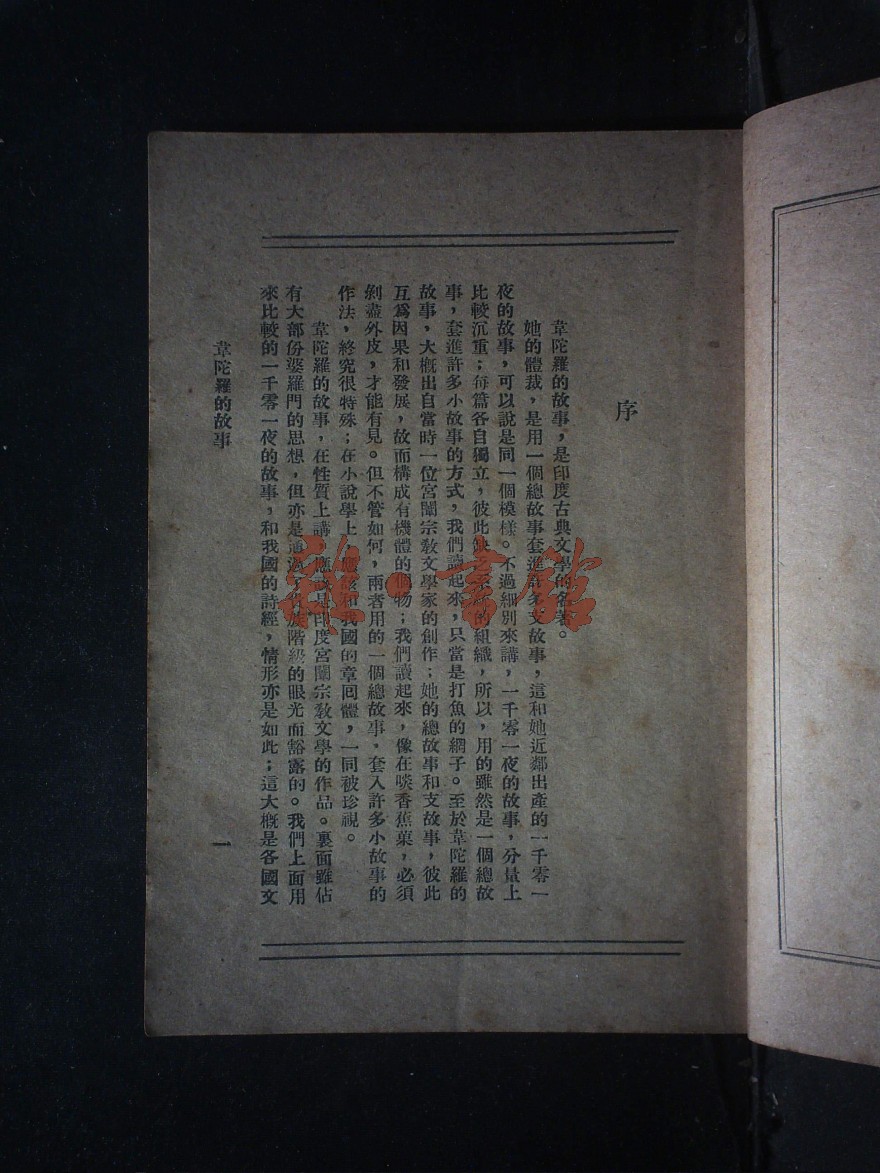 序
韋陀羅的故事，是印度古典文學的名著。
她的體裁，是用一個總故事套進許多支故事，這和她近鄰出產的一千零一
夜的故事，可以說是同一個模樣。不過細別來講，一千零一夜的故事，分量上
比較沉重；每篇各自獨立，彼此缺乏系統的組織，所以，用的雖然是一個總故
事，套進許多小故事的方式，我們讀起來，只當是打魚的網子。至於韋陀羅的
故事，大概出自當時一位宮闈宗教文學家的創作；她的總故事和支故事，彼此
互爲因果和發展，故而構成有機體的個物；我們讀起來，像在啖香蕉菓，必須
剝盡外皮，才能有見。但不管如何，兩者用的一個總故事，套入許多小故事的
作法，終究很特殊；在小說學上，應該和我國的章回體，一同被珍視。
韋陀羅的故事，在性質上講，應該是印度宮闈宗教文學的作品。裏面雖佔
有大部份婆羅門的思想，但亦是通過了貴族階級的眼光而豁露的。我們上面用
來比較的一千零一夜的故事，和我國的詩經，情形亦是如此；這大概是各國文
韋陀羅的故事
一
雜·書館